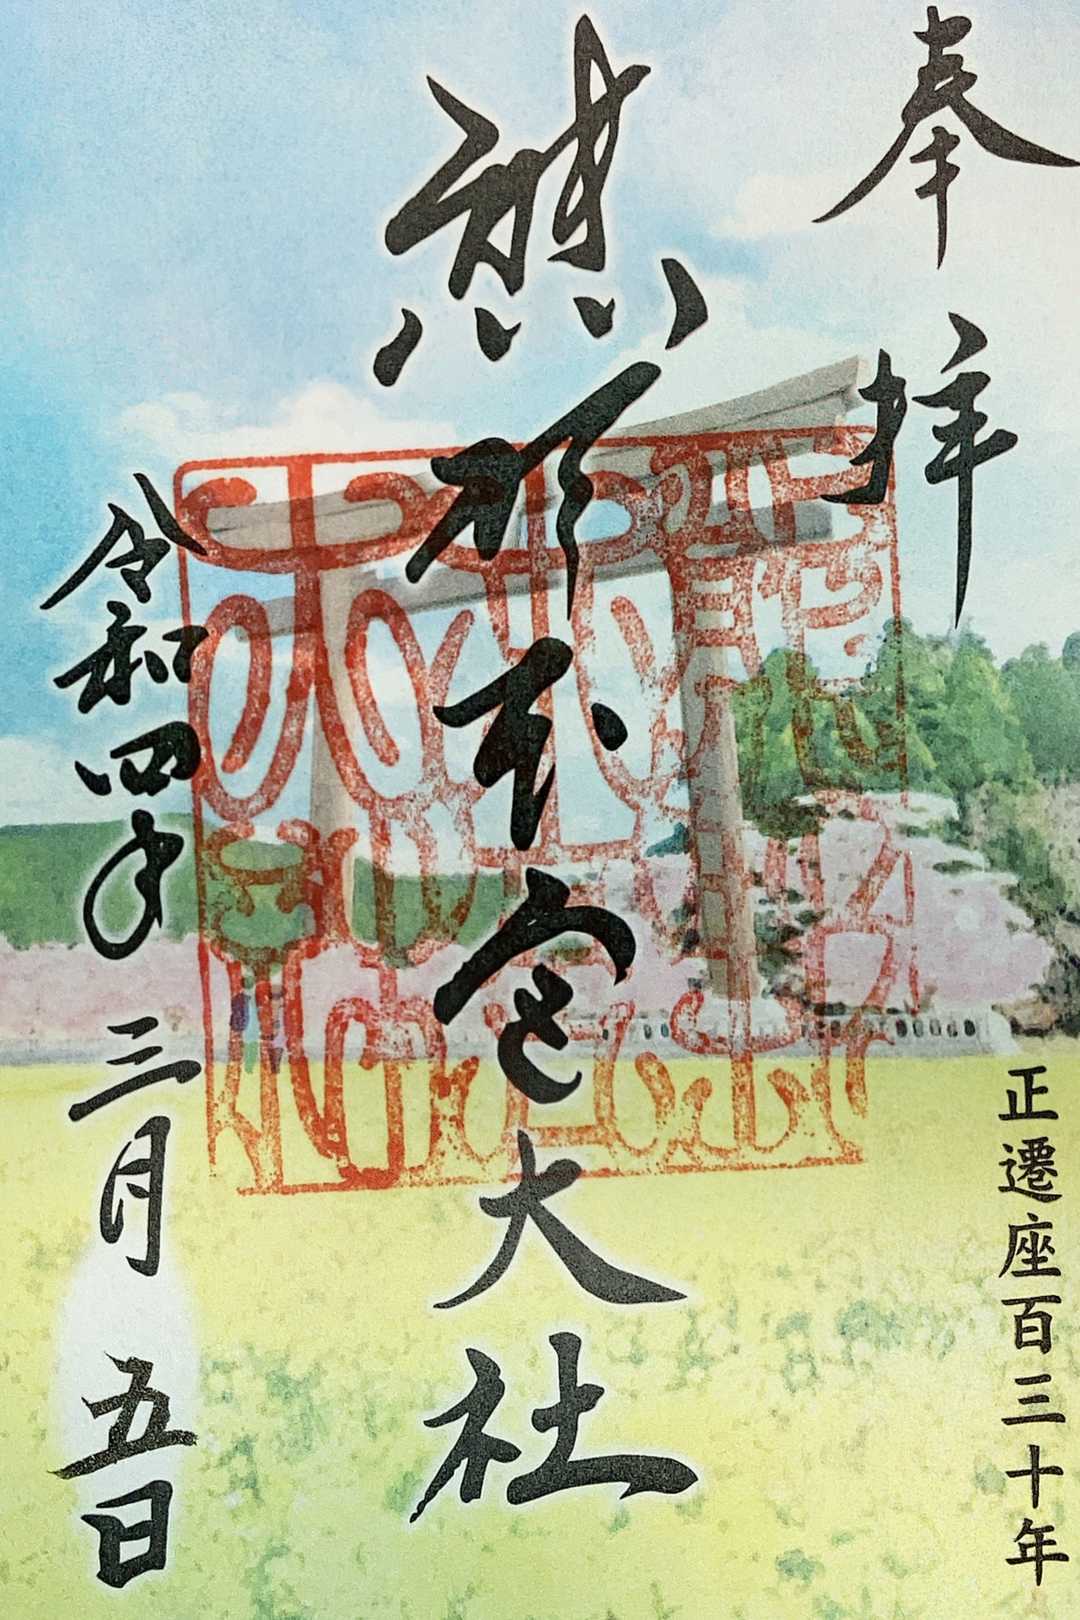 奉拝
正遷座百三十年
熊野本宮大社
令和四年三月五日